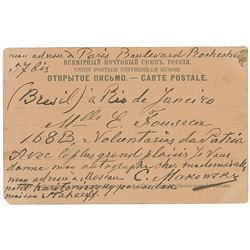 mon adresse à Paris Boulevard Rochechouart
57 bis
ВСЕМІРНЫЙ ПОЧТОВЫЙ СОЮЗЪ. РОССІЯ.
UNION POSTALE UNIVERSELLE RUSSIE.
ОТКРЫТОЕ ПИСЬМО. — CARTE POSTALE.
(Bresil) à Rio de Janeiro
Mlle E Fonseca
168B Voluntarios da Patria
Avec le plus grand plaisir je Vous
donne mon autographe cher mademoiselle
mon adresse à Moscou C. Makowsky
maison Makaeff